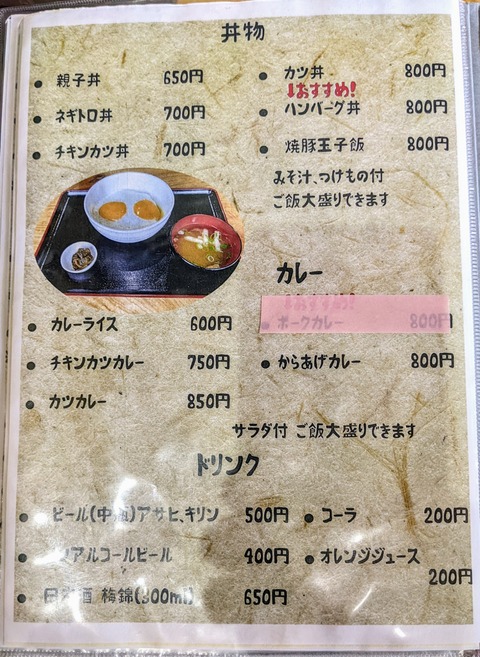 丼物
親子丼 650円
ネギトロ丼 700円
チキンカツ丼 700円
カツ丼 800円
↓おすすめ!
ハンバーグ丼 800円
焼豚玉子飯 800円
みそ汁、つけもの付
ご飯大盛りできます
カレー
カレーライス 600円
チキンカツカレー 750円
カツカレー 850円
↓おすすめ!
ポークカレー 800円
からあげカレー 800円
サラダ付 ご飯大盛りできます
ドリンク
ビール(中瓶)アサヒ、キリン 500円
ノンアルコールビール 400円
日本酒 梅錦(300ml) 650円
コーラ 200円
オレンジジュース
200円